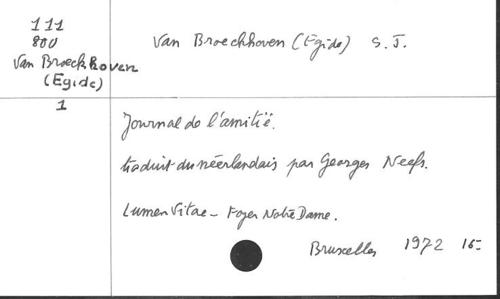 111
800
Van Broeckhoven
(Egide)
1
Van Broeckhoven (Egide) S. J.
Journal de l'amitié.
traduit du néerlandais par Georges Neefs.
Lumen Vitae - Foyer Notre Dame.
Bruxelles 1972 16-